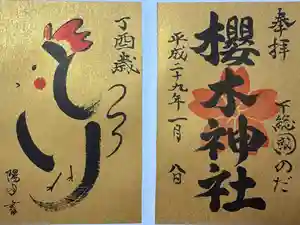 丁酉歳
とり
奉拝
下総國のだ
櫻木神社
平成二十九年一月
八日